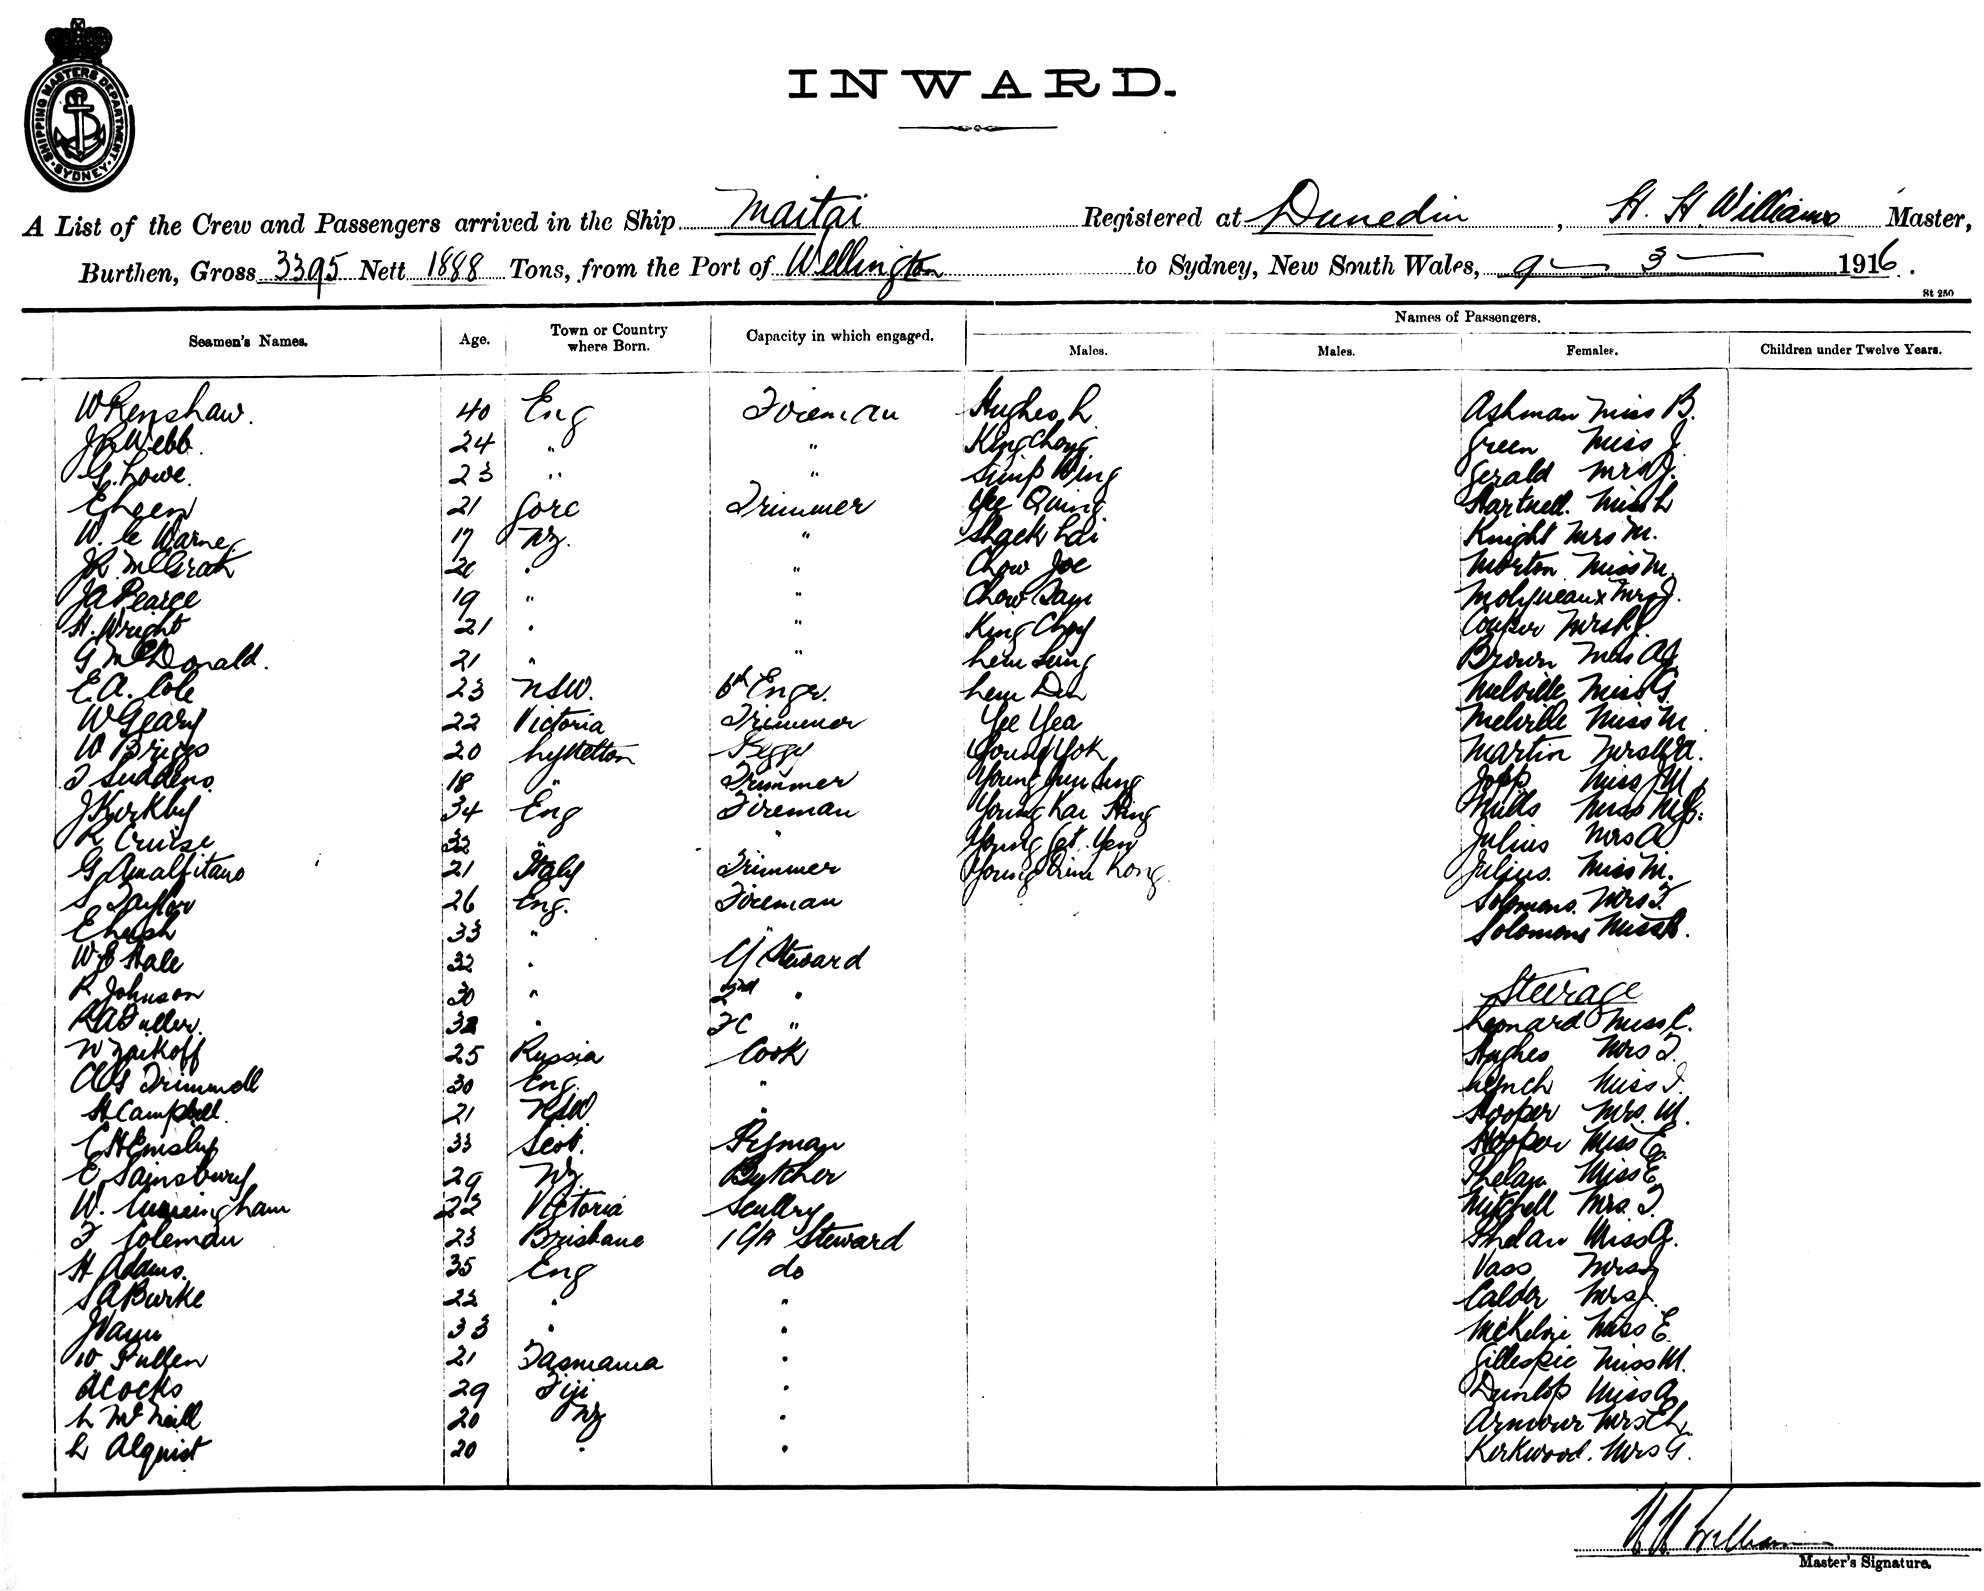 SHIPPING MASTERS DEPARTMENT. SYDNEY.
INWARD.
A List of the Crew and Passengers arrived in the Ship Maitai Registered at Dunedin, H. H. Williams Master,
Burthen, Gross 3395 Nett 1888 Tons, from the Port of Wellington to Sydney, New South Wales, 9 - 3 - 1916.
St 250
Seamen's Names. Age. Town or Country where Born. Capacity in which engaged. Names of Passengers.
Males. Males. Females. Children under Twelve Years.
W Renshaw. 40 Eng Fireman Hughes L Ashman Miss B.
J R Webb. 24 " " King Chong Green Miss J.
G. Lowe. 23 " " Sing Wing Gerald Mrs J.
E 21 Gore Trimmer Yee Quing Hartnell. Miss L
W. Le Warne. 17 NZ. " Shack Lai Knight Mrs M.
J R. McGrath " " Chow Joe Morton Miss M.
J A Pearce 19 " " Chow Sam Molyneaux Mrs J.
H. Wright 21 " " King Choy Couper Mrs R J.
G McDonald. 21 " " Lem Sung Brown Mrs A J.
E. A. Cole 23 NSW. 6th Engr. Lem Den Melville Miss G.
W Geary 22 Victoria Trimmer Yee Yea Melville Miss M
W Briggs 20 Lyttelton Peggy Young Yok Martin Mrs
T Suddens. 18 " Trimmer Young Sing Jopp Miss J M
J Kirkby 34 Eng Fireman Young Kai Hing Mills Miss
R Cruise 32 " " Young Get Yen Julius Mrs A
G Amalfitano 21 Italy Trimmer Young Kong. Julius. Miss M.
S Taylor 26 Eng. Fireman Solomons. Mrs F.
E Leash 33 " " Solomons Miss
W E Hale 32 " C/ Steward
R Johnson 30 " 2nd " Steerage
R A Fuller. 32 " FC " Leonard Miss C.
N Zaikoff 25 Russia Cook Hughes Mrs F.
Trimmell 30 Eng. " Lynch Miss I.
H Campbell. 21 NSW. " Hooper Mrs. M.
C H Emsley 33 Scot. Pryman Hooper Miss E.
E Sainsbury 29 NZ Butcher Phelan Miss E
W. Cunningham 22 Victoria Scullry Mitchell Mrs. F.
F Coleman 23 Brisbane Steward Phelan Miss A.
H Adams. 35 Eng do Vass Mrs
S A Burke 22 " " Calder Mrs J.
J Vann 33 " " McKelvie Miss E
W. Pullen 21 Tasmania " Gillespie Miss M.
A Cocks 29 Fiji " Dunlop Miss A
L McNeill 20 NZ " Armour Mrs E L
L Alquist 20 " " Kirkwood. Mrs G.
H H Williams
Master's Signature.